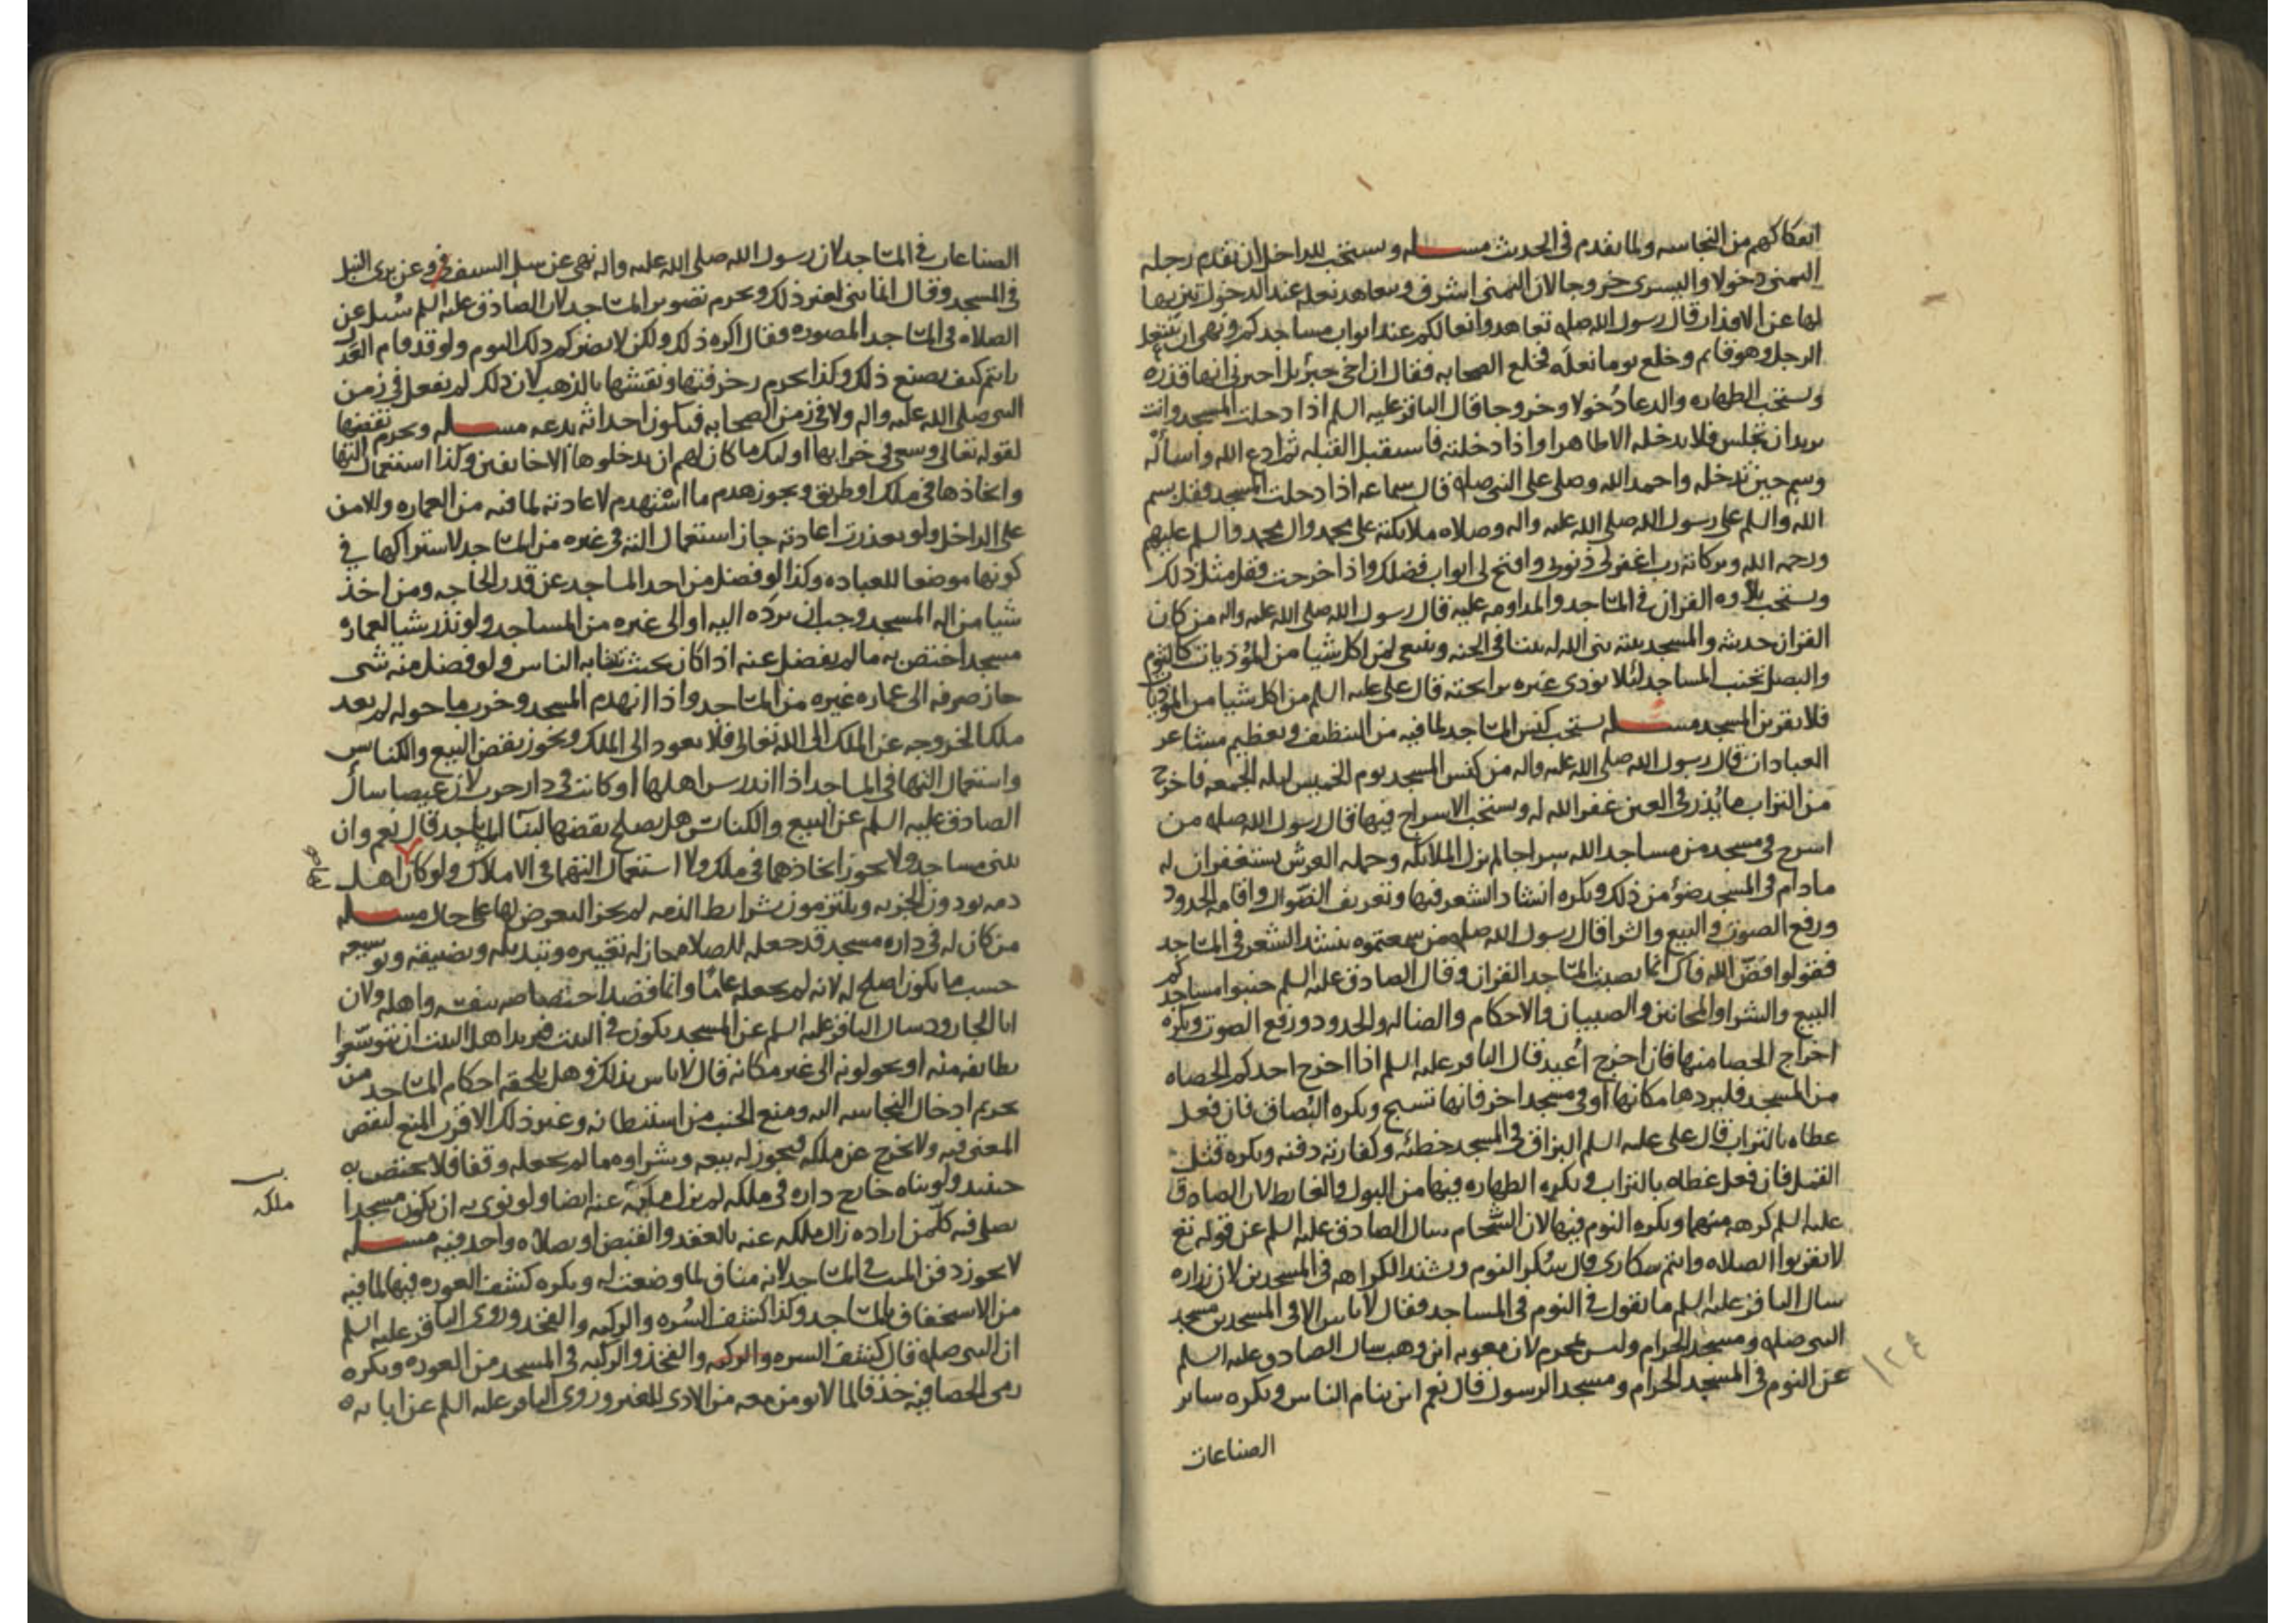 انفكاكهم من النجاسه ولما تقدم في الحديث مسله ويستحب للداخل ان يقدم رجله
اليمنى دخولا واليسرى خروجا لان اليمنى اشرف ويتعاهد نعله عند الدخول
لها عن الاقذار قال رسول الله صله تعاهدوا نعالكم عند ابواب مساجدكم ونهى ان يتنعل
الرجل وهو قايم وخلع يوما نعله فخلع الصحابه فقال ان اخي جبرئيل اخبرني انها قذره
ويستحب الطهاره والدعا دخولا وخروجا قال الباقر عليه السلم اذا دخلت المسجد وانت
تريد ان تجلس فلا تدخله الا طاهرا واذا دخلته فاستقبل القبله ثم ادع الله واسأله
وسم حين تدخله واحمد الله وصلي على النبي صله قال سماعه اذا دخلت المسجد فقل بسم
الله والسلم على رسول الله صلى الله عليه واله وصلاه ملائكته على محمد وال محمد والسلم عليهم
ورحمه الله وبركاته رب اغفر لي ذنوبي وافتح لي ابواب فضلك واذا خرجت فقل مثل ذلك
ويستحب تلاوه القران في المساجد والمداومه عليه قال رسول الله صلى الله عليه واله من كان
القران حديثه والمسجد بيته بنى الله له بيتا في الجنه وينبغي لمن اكل شيا من المؤذيات كالثوم
والبصل تجنب المساجد لئلا يوذى غيره برايحته قال على عليه السلم من اكل شيا من الموذيات
فلا يقربن المسجد مسله يستحب كنس المساجد لما فيه من التنظيف وتعظيم مشاعر
العبادات قال رسول الله صلى الله عليه واله من كنس المسجد يوم الخميس ليله الجمعه فاخرج
من التراب ما يذر في العين غفر الله له ويستحب الاسراج فيها قال رسول الله صله من
اسرج في مسجد من مساجد الله سراجا لم تزل الملائكه وحمله العرش يستغفرون له
ما دام في المسجد ضؤ من ذلك ويكره انشاد الشعر فيها وتعريف الضوال واقامه الحدود
ورفع الصوت والبيع والشرا قال رسول الله صله من سمعتموه ينشد الشعر في المساجد
فقولوا فض الله فاك انما نصبت المساجد للقران وقال الصادق عليه السلم جنبوا مساجدكم
البيع والشرا والمجانين والصبيان والاحكام والضاله والحدود ورفع الصوت ويكره
اخراج الحصا منها فان اخرج أعيد قال الباقر عليه السلم اذا اخرج احدكم الحصاه
من المسجد فليردها مكانها او في مسجد اخر فانها تسبح ويكره البصاق فان فعل
غطاه بالتراب قال على عليه السلم البزاق في المسجد خطئه وكفارته دفنه ويكره قتل
القمل فان فعل غطاه بالتراب ويكره الطهاره فيها من البول والغايط لان الصادق
عليه السلم كرهه منهما ويكره النوم فيها لان الشحام سال الصادق عليه السلم عن قوله تع
لا تقربوا الصلاه وانتم سكارى قال سكر النوم ويشتد الكراهه في المسجدين لان زراره
سال الباقر عليه السلم ما تقول في النوم في المساجد فقال لا باس الا في المسجدين مسجد
النبي صله ومسجد الحرام وليس بمحرم لان معويه ابن وهب سال الصادق عليه السلم
عن النوم في المسجد الحرام ومسجد الرسول قال نعم اين ينام الناس ويكره ساير
الصناعات
١٢٤
الصناعات في المساجد لان رسول الله صلى الله عليه واله نهى عن سل السيف وعن برى النبل
في المسجد وقال انما بني لغير ذلك ويحرم تصوير المساجد لان الصادق عليه السلم سئل عن
الصلاه في المساجد المصوره فقال اكره ذلك ولكن لا يضركم ذلك اليوم ولو قد قام العدل
رايتم كيف يصنع ذلك وكذا يحرم زخرفتها ونقشها بالذهب لان ذلك لم يفعل في زمن
النبي صلى الله عليه واله ولا في زمن الصحابه فيكون احداثه بدعه مسله ويحرم نقضها
لقوله تعالى وسعى في خرابها اولئك ما كان لهم ان يدخلوها الا خايفين وكذا استعمال التها
واتخاذها في ملك او طريق ويجوز هدم ما اشتهدم لاعادته لما فيه من العماره والامن
على الداخل ولو تعذرت اعادته جاز استعمال الته في غيره من المساجد لاشتراكها في
كونها موضعا للعباده وكذا لو فضل من احد المساجد عن قدر الحاجه ومن اخذ
شيا من اله المسجد وجب ان يرده اليه او الى غيره من المساجد ولو نذر شيا لعماره
مسجد اختص به ما لم يفضل عنه اذا كان بحيث ينتابه الناس ولو فضل منه شى
جاز صرفه الى عماره غيره من المساجد واذا انهدم المسجد وخرب ما حوله لم يعد
ملكا لخروجه عن الملك الى الله تعالى فلا يعود الى الملك ويجوز نقض البيع والكنايس
واستعمال التها في المساجد اذا اندرس اهلها او كانت في دار حرب لان عيصا سأل
الصادق عليه السلم عن البيع والكنائس هل يصلح نقضها لبنآ المساجد قال نعم وان
تبنى مساجد ولا يجوز اتخاذهما في ملك ولا استعمال التهما في الاملاك ولو كان اهل
ذمه يودون الجزيه ويلتزمون شرايط الذمه لم يجز التعرض لها على حال مسله
من كان له في داره مسجد قد جعله للصلاه جاز له تغييره وتبديله وتضييقه وتوسيعه
حسب ما يكون اصلح له لانه لم يجعله عاما وانما قصد اختصاصه بنفسه واهله ولان
ابا الجارود سال الباقر عليه السلم عن المسجد يكون في البيت فيريد اهل البيت ان يتوسعوا
بطايفه منه او يحولونه الى غير مكانه قال لا باس بذلك وهل يلحقه احكام المساجد من
تحريم ادخال النجاسه اليه ومنع الجنب من استيطانه وغير ذلك الاقرب المنع لنقص
المعنى فيه ولا يخرج عن ملكه فيجوز له بيعه وشراوه ما لم يجعله وقفا فلا يختص به
حينيذ ولو بناه خارج داره في ملكه لم يزل ملكه عنه ايضا ولو نوى به ان يكون مسجدا
ملكه
يصلي فيه كل من اراده زال ملكه عنه بالعقد والقبض او بصلاه واحد فيه مسله
لا يجوز دفن الميت في المساجد لانه مناف لما وضعت له ويكره كشف العوره فيها لما فيه
من الاستخفاف بالمساجد وكذا كشف السره والركبه والفخذ وروى الباقر عليه السلم
ان النبي صله قال كشف السره والركبه والفخذ والركبه في المسجد من العوره ويكره
رمى الحصا فيه خذفا لما لا يومن معه من الاذى للغير وروى الباقر عليه السلم عن ابايه